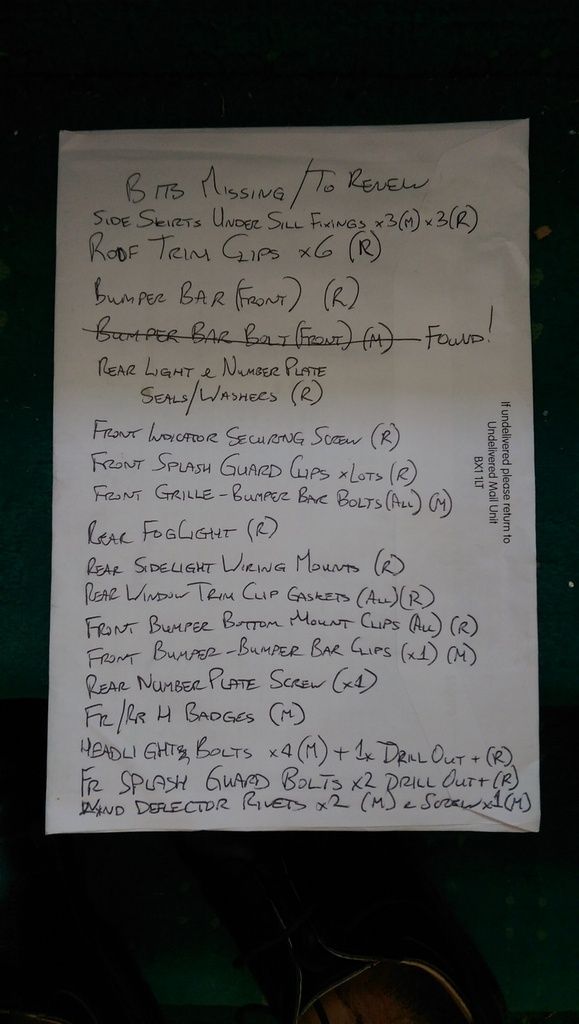 BITS MISSING/TO RENEW
SIDE SKIRTS UNDER SILL FIXINGS x3(M) x3(R)
ROOF TRIM CLIPS x6 (R)
BUMPER BAR (FRONT) (R)
BUMPER BAR BOLT (FRONT) (M) — FOUND!
REAR LIGHT & NUMBER PLATE
SEALS/WASHERS (R)
FRONT INDICATOR SECURING SCREW (R)
FRONT SPLASH GUARD CLIPS xLOTS (R)
FRONT GRILLE-BUMPER BAR BOLTS (ALL) (M)
REAR FOGLIGHT (R)
REAR SIDELIGHT WIRING MOUNTS (R)
REAR WINDOW TRIM CLIP GASKETS (ALL) (R)
FRONT BUMPER BOTTOM MOUNT CLIPS (ALL) (R)
FRONT BUMPER-BUMPER BAR CLIPS (x1) (M)
REAR NUMBER PLATE SCREW (x1)
FR/RR H BADGES (M)
HEADLIGHTS BOLTS x4 (M) + 1x DRILL OUT + (R)
FR SPLASH GUARD BOLTS x2 DRILL OUT + (R)
WIND DEFLECTOR RIVETS x2 (M) & SCREW x1 (M)
If undelivered please return to
Undelivered Mail Unit
BX1 1LT